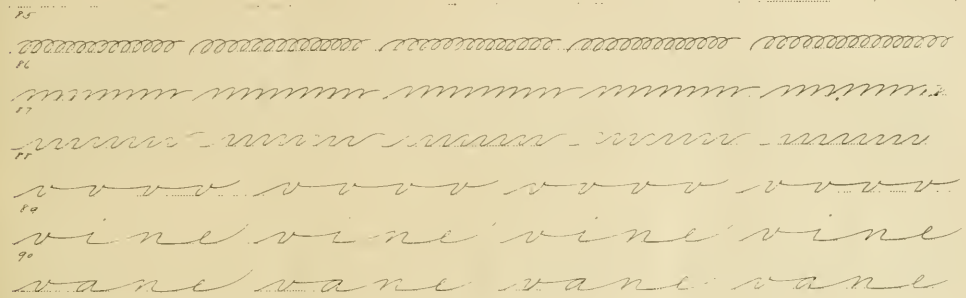 85
86
87
88
v v v v v v v v v v v v v v v v
89
vine vine vine vine
90
vane vane vane vane